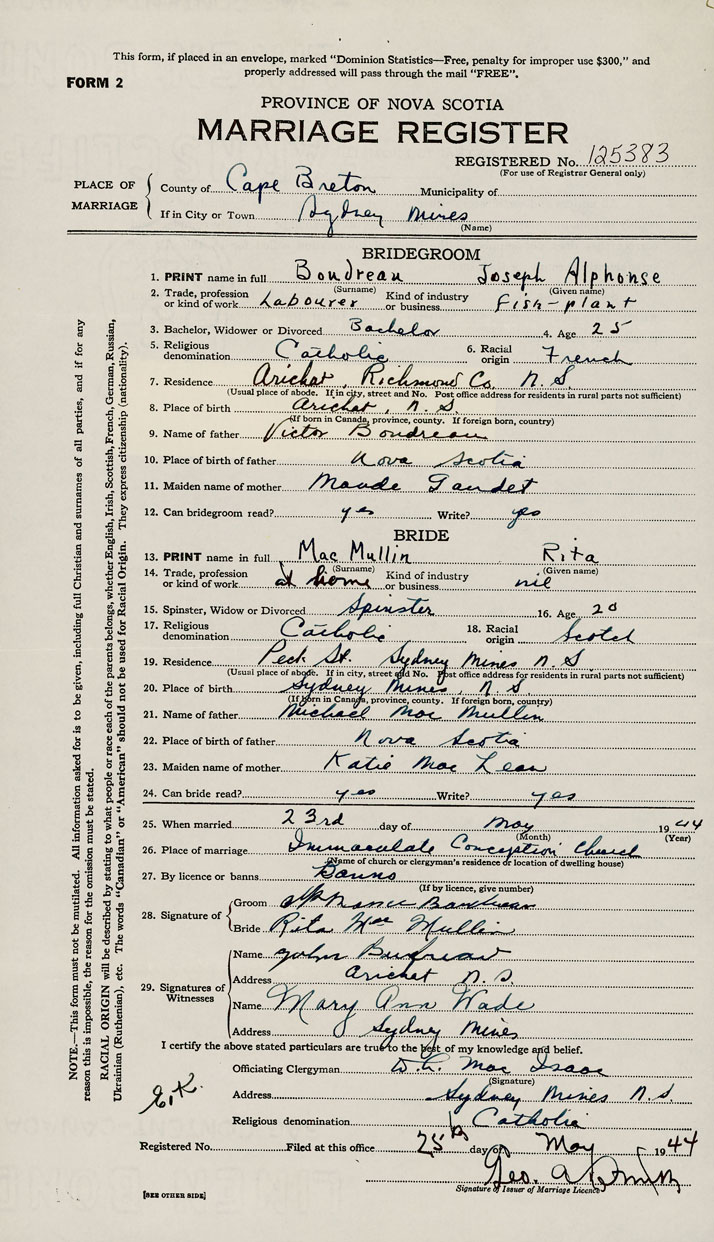 This form, if placed in an envelope, marked "Dominion Statistics—Free, penalty for improper use $300," and
properly addressed will pass through the mail "FREE".
FORM 2
PROVINCE OF NOVA SCOTIA
MARRIAGE REGISTER
REGISTERED No. 125383
(For use of Registrar General only)
PLACE OF MARRIAGE
County of Cape Breton Municipality of
If in City or Town Sydney Mines
(Name)
BRIDEGROOM
1. PRINT name in full Boudreau Joseph Alphonse
(Surname) (Given name)
2. Trade, profession or kind of work Labourer Kind of industry or business Fish-plant
3. Bachelor, Widower or Divorced Bachelor 4. Age 25
5. Religious denomination Catholic 6. Racial origin French
7. Residence Arichat, Richmond Co. N. S
(Usual place of abode. If in city, street and No. Post office address for residents in rural parts not sufficient)
8. Place of birth Arichat, N. S.
(If born in Canada, province, county. If foreign born, country)
9. Name of father Victor Boudreau
10. Place of birth of father Nova Scotia
11. Maiden name of mother Maude Gaudet
12. Can bridegroom read? yes Write? yes
BRIDE
13. PRINT name in full Mac Mullin Rita
(Surname) (Given name)
14. Trade, profession or kind of work at home Kind of industry or business nil
15. Spinster, Widow or Divorced Spinster 16. Age 20
17. Religious denomination Catholic 18. Racial origin Scotch
19. Residence Peck St. Sydney Mines N S
(Usual place of abode. If in city, street and No. Post office address for residents in rural parts not sufficient)
20. Place of birth Sydney Mines, N S
(If born in Canada, province, county. If foreign born, country)
21. Name of father Michael Mac Mullin
22. Place of birth of father Nova Scotia
23. Maiden name of mother Katie Mac Lean
24. Can bride read? yes Write? yes
25. When married 23rd day of May 1944
(Month) (Year)
26. Place of marriage Immaculate Conception Church
(Name of church or clergyman's residence or location of dwelling house)
27. By licence or banns Banns
(If by licence, give number)
28. Signature of
Groom
Bride Rita Mac Mullin
29. Signatures of Witnesses
Name John
Address Arichat N. S.
Name Mary Ann Wade
Address Sydney Mines
I certify the above stated particulars are true to the best of my knowledge and belief.
Officiating Clergyman Mac Isaac
(Signature)
Address Sydney Mines N. S.
Religious denomination Catholic
Registered No. Filed at this office 25th day of May 1944
Geo. A Smith
Signature of Issuer of Marriage Licence
[SEE OTHER SIDE]
NOTE.—This form must not be mutilated. All information asked for is to be given, including full Christian and surnames of all parties, and if for any
reason this is impossible, the reason for the omission must be stated.
RACIAL ORIGIN will be described by stating to what people or race each of the parents belongs, whether English, Irish, Scottish, French, German, Russian,
Ukrainian (Ruthenian), etc. The words "Canadian" or "American" should not be used for Racial Origin. They express citizenship (nationality).